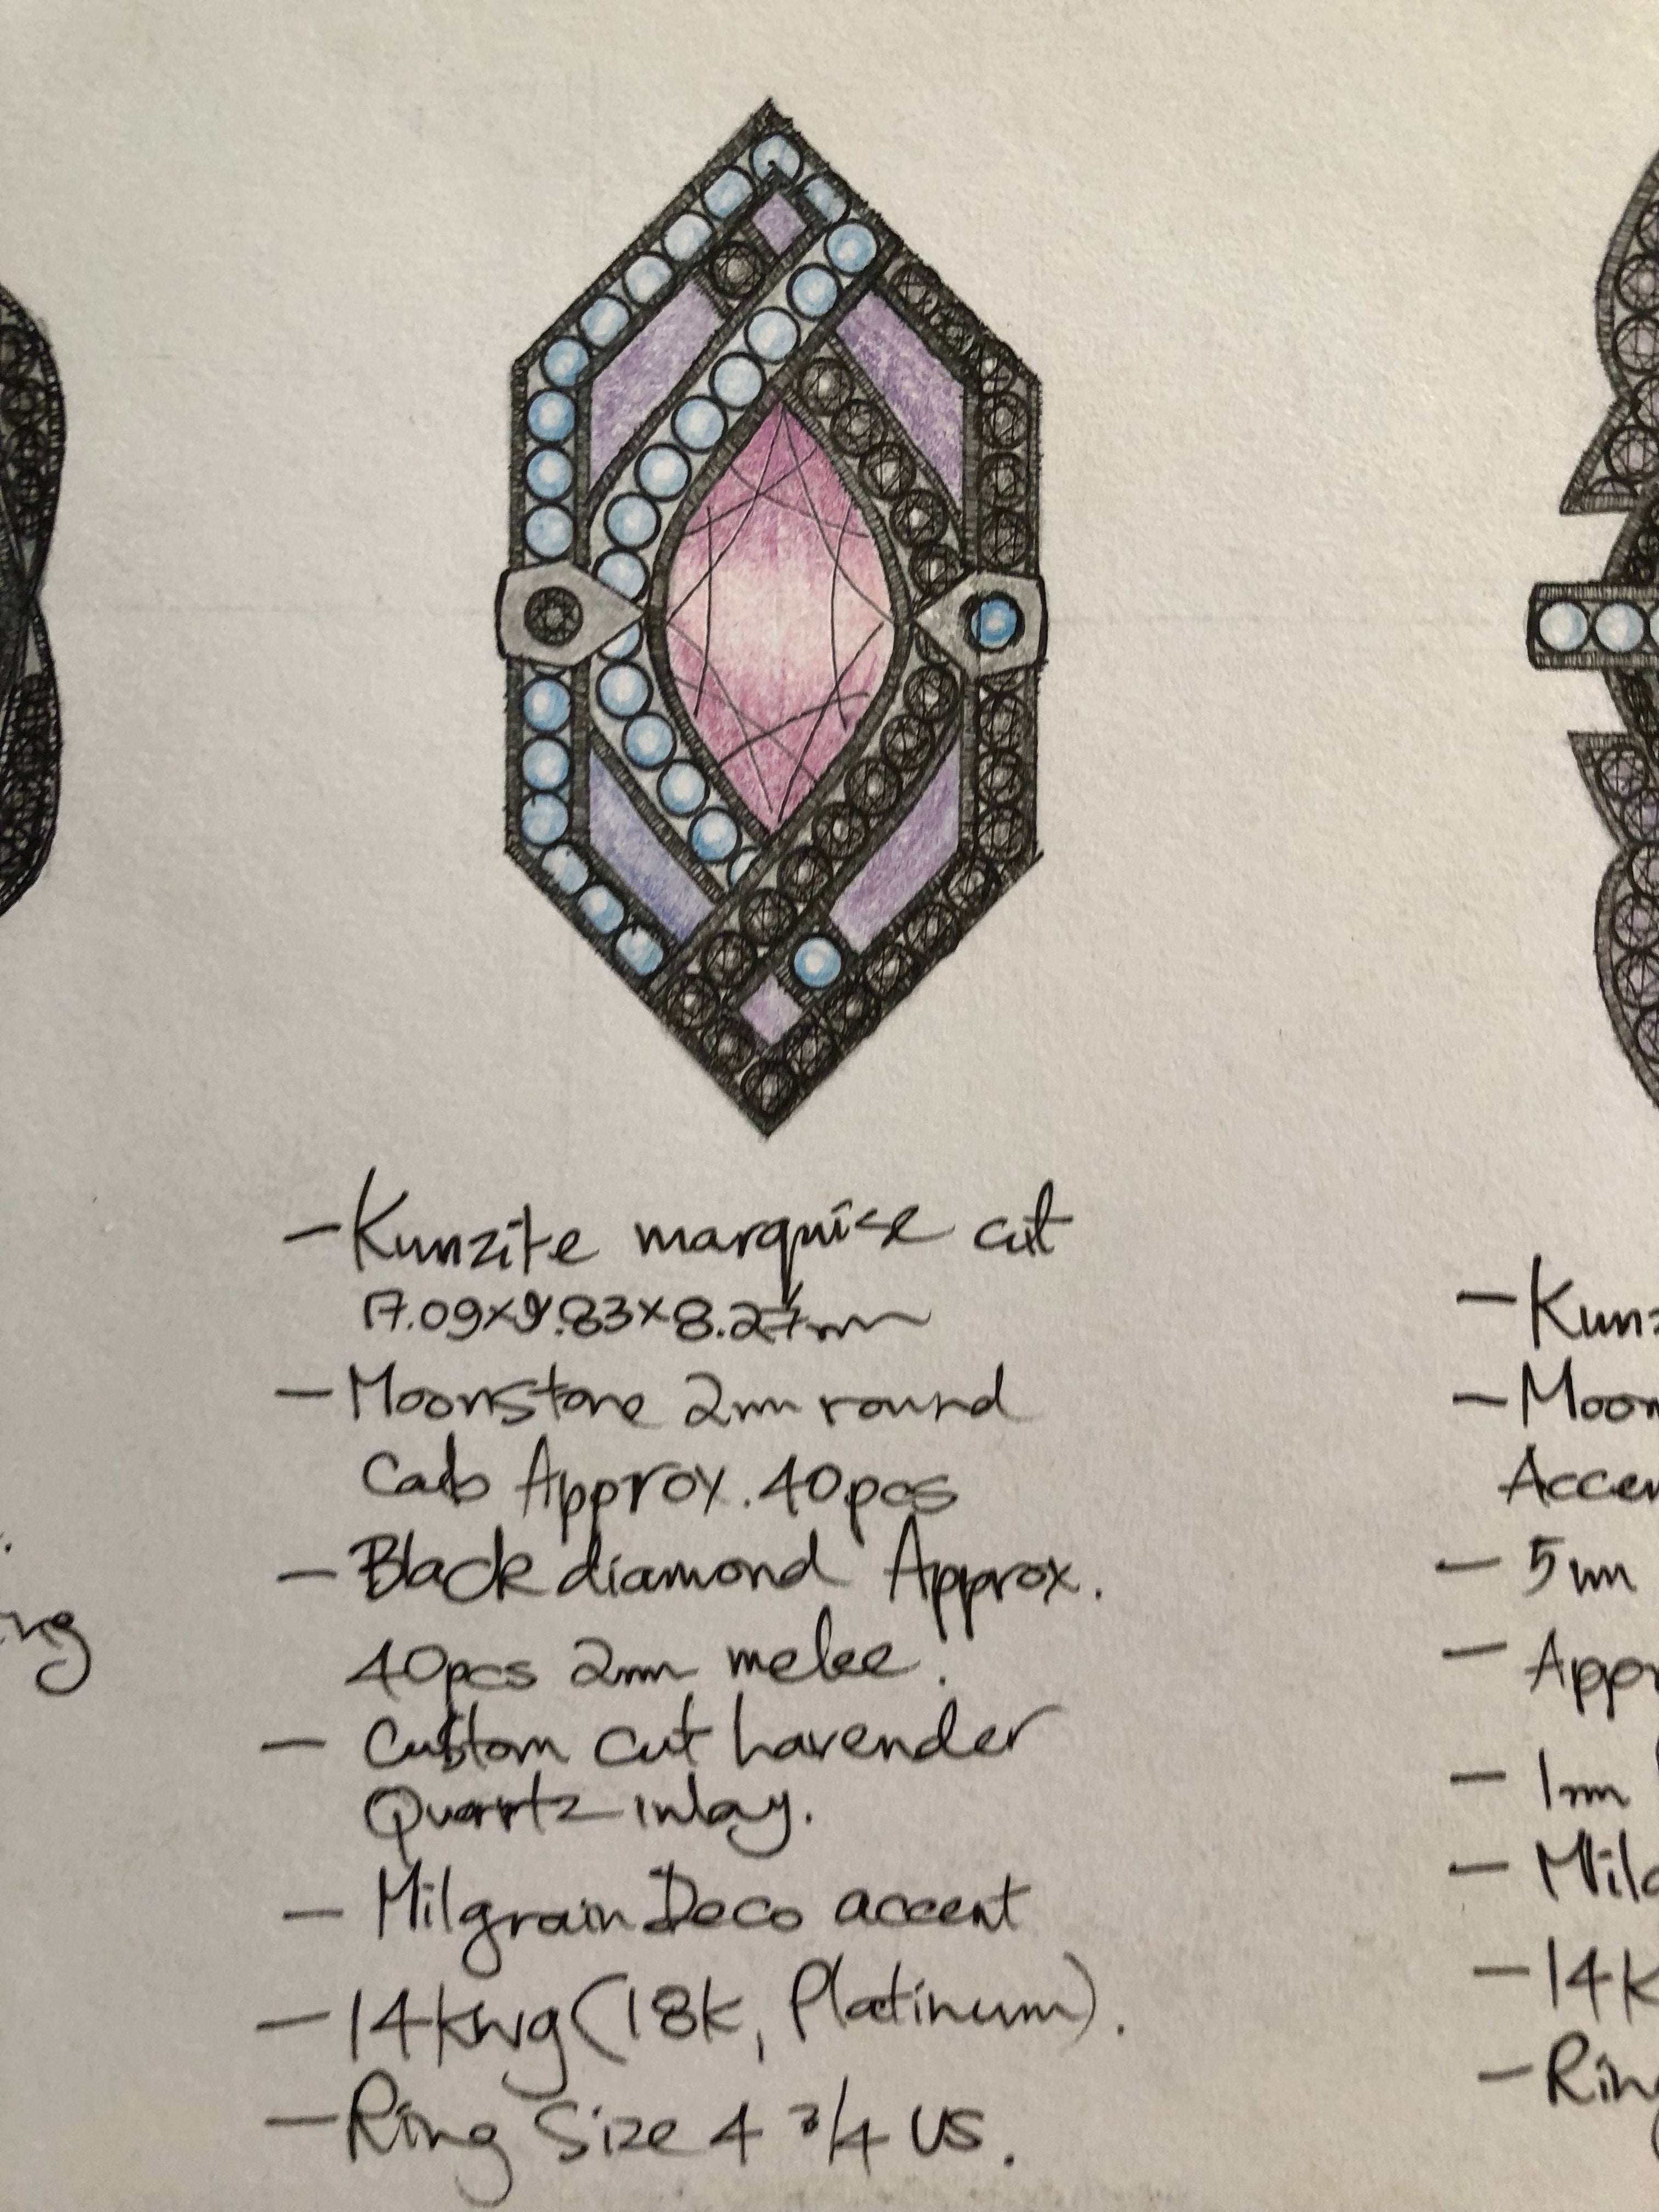 - Kunzite marquise cut
17.09x9.83x8.27mm
- Moonstone 2mm round
Cab Approx. 40pcs
- Black diamond Approx.
40pcs 2mm melee.
- Custom cut Lavender
Quartz inlay.
- Milgrain Deco accent
- 14kwg (18k, Platinum).
- Ring Size 4 3/4 US.
- Kunz
- Moon
Accen
- 5mm
- Appr
- 1mm
- Milg
- 14k
- Ring